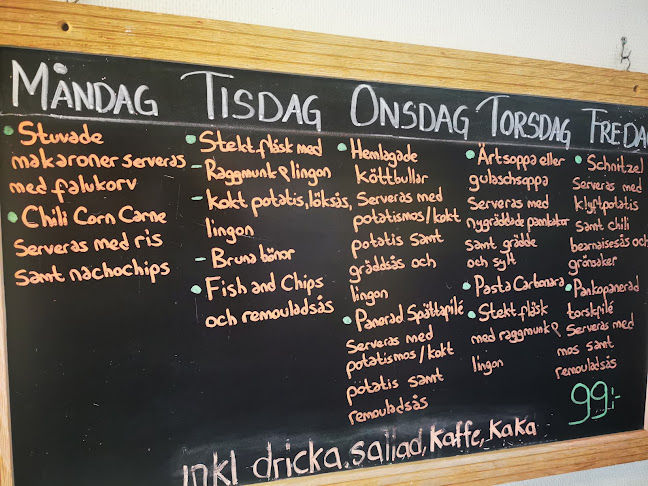 MÅNDAG
• Stuvade
makaroner serveras
med falukorv
• Chili Corn Carne
Serveras med ris
samt nachochips
TISDAG
• Stekt fläsk med
- Raggmunk & lingon
- kokt potatis, löksås,
lingon
- Bruna bönor
• Fish and Chips
och remouladsås
ONSDAG
• Hemlagade
köttbullar
Serveras med
potatismos/kokt
potatis samt
gräddsås och
lingon
• Panerad Spättapilé
Serveras med
potatismos/kokt
potatis samt
remouladsås
TORSDAG
• Ärtsoppa eller
gulaschsoppa
Serveras med
nygräddade pannkakor
samt grädde
och sylt
• Pasta Carbonara
• Stekt fläsk
med raggmunk &
lingon
FREDAG
• Schnitzel
Serveras med
klyftpotatis
samt chili
bearnaisesås och
grönsaker
• Pankopanerad
torskpilé
Serveras med
mos samt
remouladsås
99:-
inkl dricka, sallad, kaffe, kaka